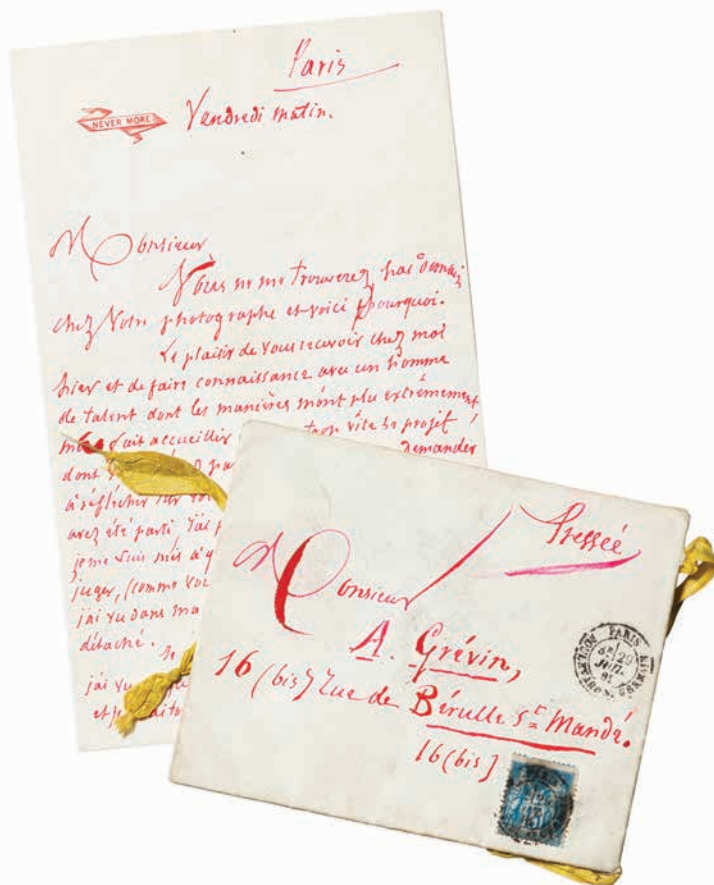 Paris
NEVER MORE
Vendredi matin.
Monsieur
Vous ne me trouverez pas demain
chez Votre photographe et voici pourquoi.
Le plaisir de vous recevoir chez moi
hier et de faire connaissance avec un homme
de talent dont les manières m'ont plu extrêmement
m'a fait accueillir trop vite le projet
dont demander
à réfléchir sur
avez été parti, j'ai
je me suis mis à
juger, (comme
j'ai vu dans ma
détaché.
Je
j'ai vu
et je
Pressée
Monsieur
A. Grévin,
16 (bis) Rue de Bérulle St Mandé.
16 (bis)
PARIS
29
JUIL